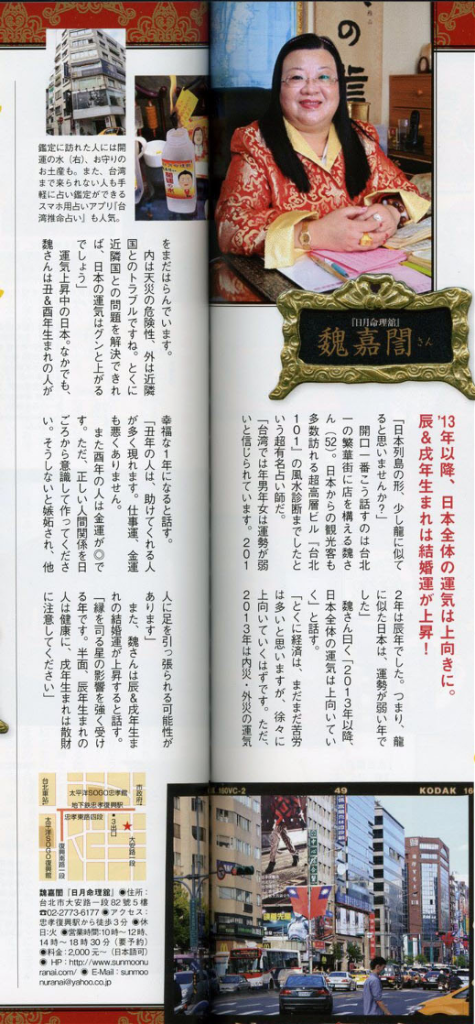 『日月命理舘』
魏嘉誾さん
'13年以降、日本全体の運気は上向きに。
辰&戌年生まれは結婚運が上昇!
「日本列島の形、少し龍に似て
ると思いませんか?」
開口一番こう話すのは台北
一の繁華街に店を構える魏さ
ん(52)。日本からの観光客も
多数訪れる超高層ビル『台北
101』の風水診断までしたと
いう超有名占い師だ。
「台湾では年男年女は運勢が弱
いと信じられています。201
2年は辰年でした。つまり、龍
に似た日本は、運勢が弱い年で
した」
魏さん曰く「2013年以降、
日本全体の運気は上向いてい
く」と話す。
「とくに経済は、まだまだ苦労
は多いと思いますが、徐々に
上向いていくはずです。ただ、
2013年は内災・外災の運気
をまだはらんでいます。
内は天災の危険性、外は近隣
国とのトラブルですね。とくに
近隣国との問題を解決できれ
ば、日本の運気はグンと上がる
でしょう」
運気上昇中の日本。なかでも、
魏さんは丑&酉年生まれの人が
幸福な1年になると話す。
「丑年の人は、助けてくれる人
が多く現れます。仕事運、金運
も悪くありません。
また酉年の人は金運が◎で
す。ただ、正しい人間関係を日
ごろから意識して作ってくださ
い。そうしないと嫉妬され、他
人に足を引っ張られる可能性が
あります」
また、魏さんは辰&戌年生ま
れの結婚運が上昇すると話す。
「縁を司る星の影響を強く受け
る年です。半面、辰年生まれの
人は健康に、戌年生まれは散財
に注意してください」
鑑定に訪れた人には開
運の水(右)、お守りの
お土産も。また、台湾
まで来られない人も手
軽に占い鑑定ができる
スマホ用占いアプリ『台
湾推命占い』も人気。
市政府
台北車站
太平洋SOGO忠孝館
地下鉄忠孝復興駅
忠孝東路四段
3出口
大安路一段
復興南路一段
太平洋SOGO復興館
魏嘉誾『日月命理舘』●住所:
台北市大安路一段82號5樓
☎02-2773-6177●アクセス:
忠孝復興駅から徒歩3分●休
日:火●営業時間:10時〜12時、
14時〜18時30分(要予約)
●料金:2,000元〜(日本語可)
●HP:http://www.sunmoonu
ranai.com/●E-Mail:sunmoo
nuranai@yahoo.co.jp
160VC-2
49
KODAK 16